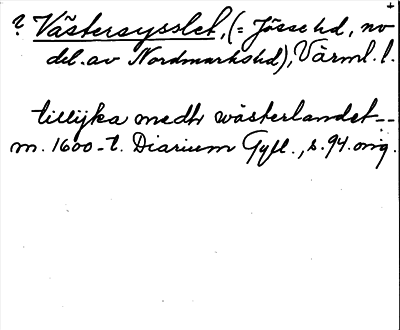 ? Västersysslet, (= Jösse hd, nv
del. av Nordmarks hd), Värml. l.
tillijka medh wästerlandet --
m. 1600-t. Diarium Gyll., s. 94. orig.